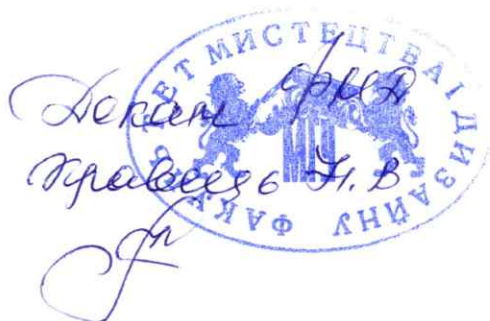 ФАКУЛЬТЕТ МИСТЕЦТВА І ДИЗАЙНУ
Декан ФМД
Кравець Н.В